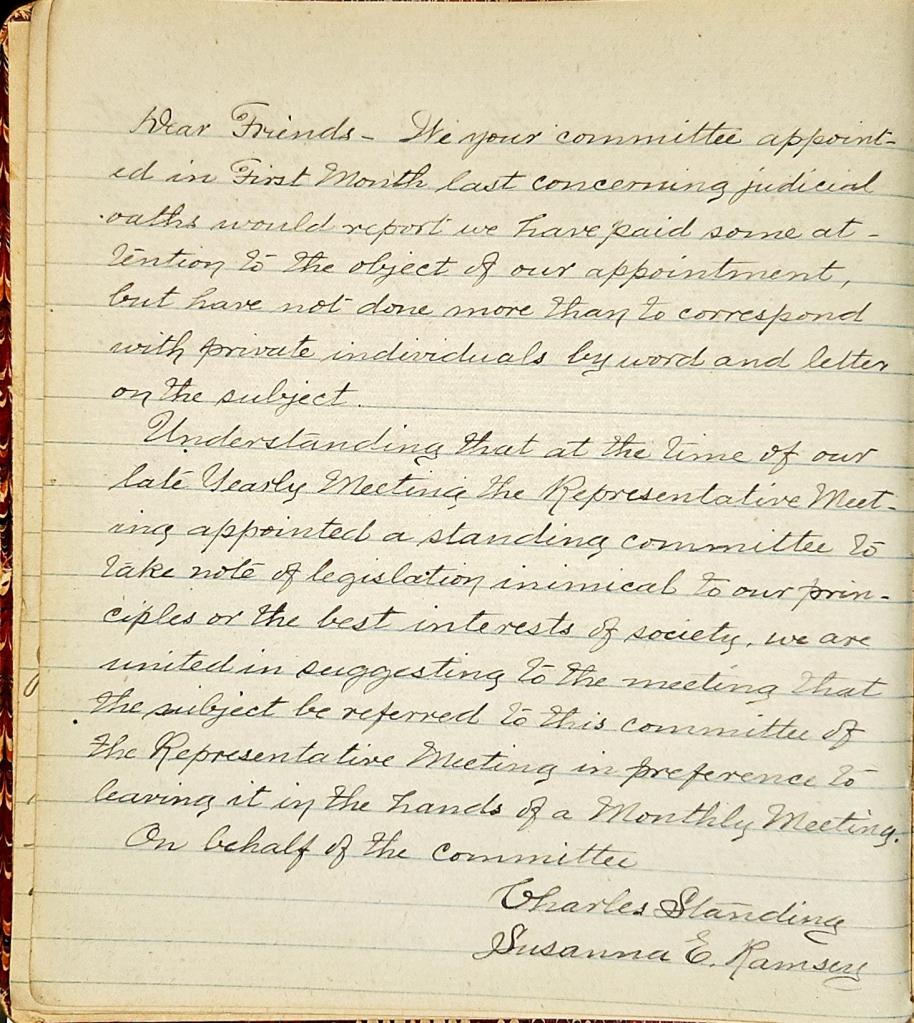 Dear Friends - We your committee appoint-
ed in First Month last concerning judicial
oaths would report we have paid some at-
tention to the object of our appointment,
but have not done more than to correspond
with private individuals by word and letter
on the subject.
Understanding that at the time of our
late Yearly Meeting the Representative Meet-
ing appointed a standing committee to
take note of legislation inimical to our prin-
ciples or the best interests of society, we are
united in suggesting to the meeting that
the subject be referred to this committee of
the Representative Meeting in preference to
leaving it in the hands of a Monthly Meeting.
On behalf of the committee
Charles Standing
Susanna E. Ramsey